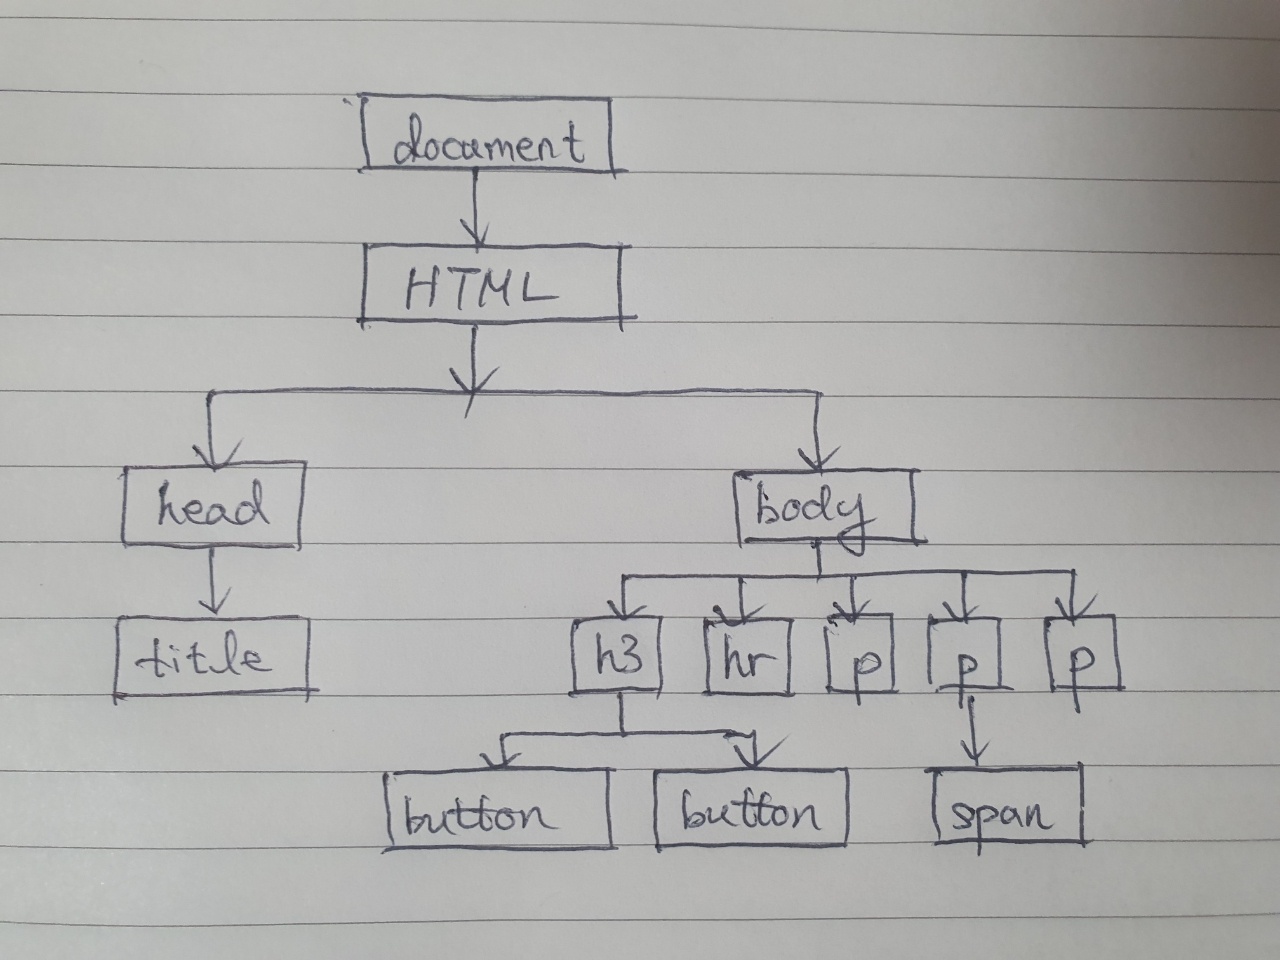 document
HTML
head body
title h3 hr p p p
button button span